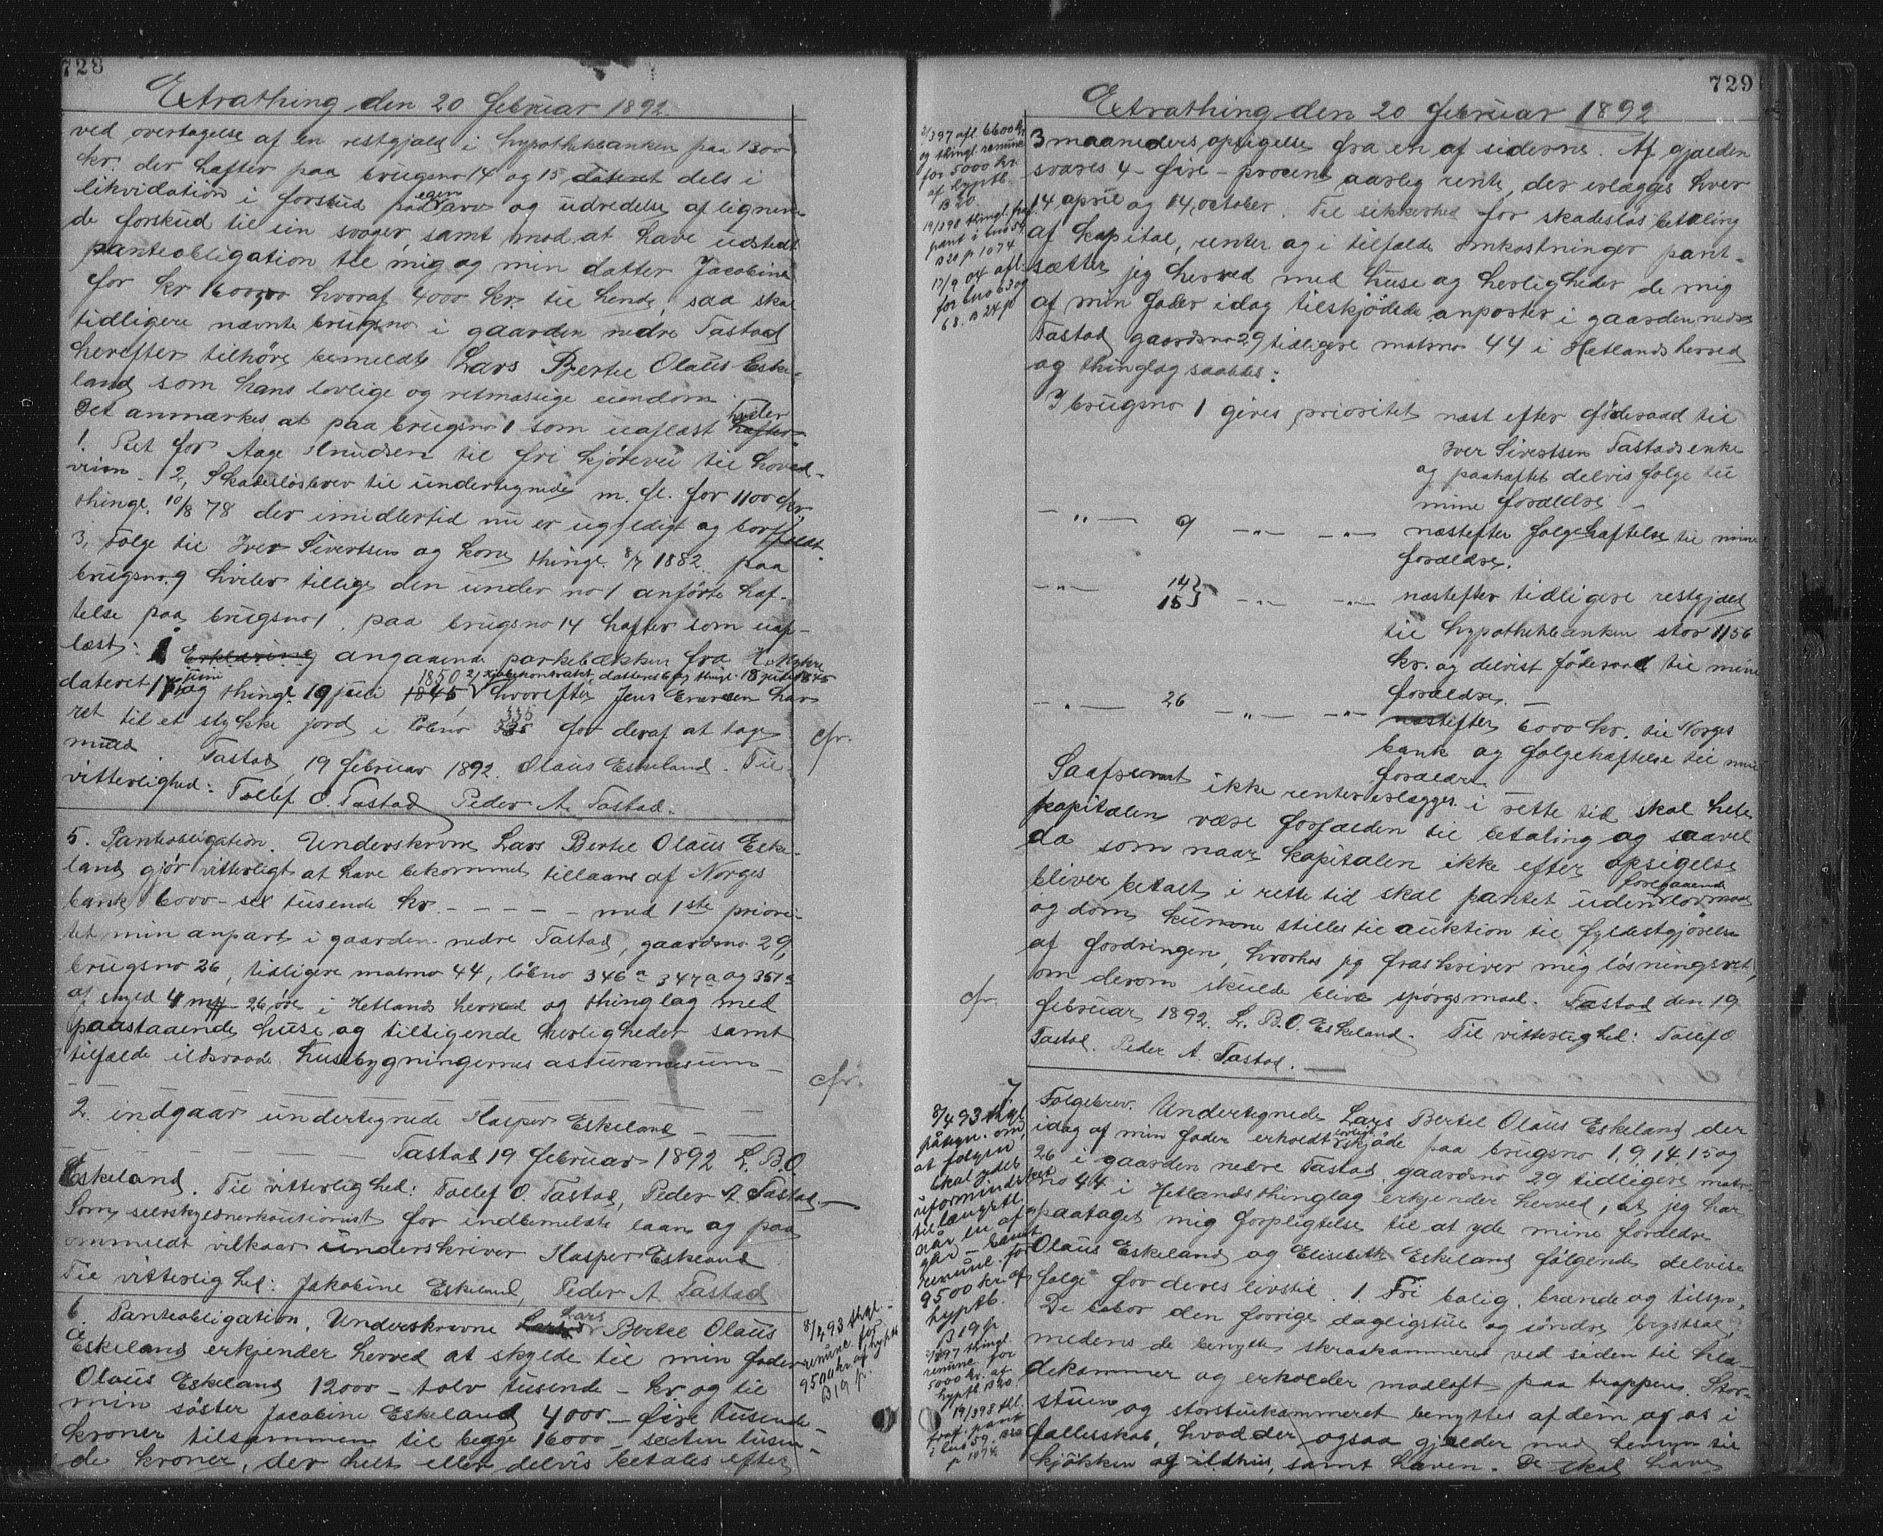 728
Extrathing den 20 februar 1892.
ved overtagelse af en restgjæld i hypothekbanken paa 1300
kr. der hæfter paa brugsno 14 og 15 dels i
likvidation i forskud paa egen arv og udredelse af lignen-
de forskud til sin svoger, samt mod at have udstedt
panteobligation til mig og min datter Jacobine
for kr 16000,00 hvoraf 4000 kr. til hende, saa skal
tidligere nævnte brugsno i gaarden nedre Tastad
herefter tilhøre bemeldte Lars Bertel Olaus Eske-
land som hans lovlige og retmæssige eiendom.
Det anmærkes at paa brugsno 1 som uaflæst hviler
1. Ret for Aage Knudsen til fri kjørevei til hoved-
veien. 2, Skadesløsbrev til undertegnede m. fl. for 1100 kr.
thingl. 10/8 78 der imidlertid nu er ugyldigt og bortfaldt.
3, Følge til Iver Sivertsen og kone thingl. 8/7 1882. paa
brugsno. 9 hviler tillige den under no 1 anførte hæf-
telse paa brugsno 1. paa brugsno 14 hæfter som uaf-
læst: 1 Erklæring angaaende parkebækken fra
dateret 17 juni og thingl. 19 juni 1850 2, Kjøbekontrakt, datteret og thingl. 18 juli 1845
hvorefter Jens Evensen har
ret til et stykke jord i løbno 335 for deraf at tage
muld Tastad, 19 februar 1892. Olaus Eskeland. Til
vitterlighed: Tollef O. Tastad Peder A. Tastad.
cfr.
5. Panteobligation. Underskrevne Lars Bertel Olaus Eske-
land gjør vitterligt at have bekommet tillaans af Norges
bank 6000 - sex tusende kr. - - - - - med 1ste priori-
tet min anpart i gaarden nedre Tastad, gaardsno 29,
brugsno 26, tidligere matrno 44, løbno 346a 347a og 351a
af skyld 4 mk 26 øre i Hetlands herred og thinglag med
paastaaende huse og tilliggende herligheder samt
tilfælde ildsvaade husebygningernes assurancesum -
cfr.
2. indgaar undertegnede Kasper Eskeland - -
Tastad 19 februar 1892 L. B. O.
Eskeland. Til vitterlighed: Tollef O. Tastad, Peder A. Tastad.
Som selvskyldnerkautionist for indbemeldte laan og paa
ommeldt vilkaar underskriver Kasper Eskeland
Til vitterlighed: Jakobine Eskeland, Peder A. Tastad
6. Panteobligation. Underskrevne Lars Bertel Olaus
Eskeland erkjender herved at skylde til min fader
Olaus Eskeland 12000 - tolv tusende - kr og til
min søster Jacobine Eskeland 4000 - fire tusende
kroner tilsammen til begge 16000 - sexten tusen-
de kroner, der helt eller delvis betales efter
8/4 93 thgl.
remune for
9500 kr. af hyptb
B 19 p
729
Extrathing den 20 februar 1892
2/3 97 afl. 6600 kr
og thingl. remune
for 5000 kr.
af hyptb.
B 20
19/3 98 thingl. fraf.
pant i bno 59
B 20 p 1074
17/9 04 afl.
for bno 63 og
68. B 24 p
3 maaneders opsigelse fra en af siderne. Af gjælden
svares 4 - fire - procent aarlig rente, der erlægges hver
14 april og 14 october. Til sikkerhed for skadesløs betaling
af kapital, renter og i tilfælde omkostninger pant-
sætter jeg herved med huse og herligheder de mig
af min fader idag tilskjødede anparter i gaarden nedre
Tastad gaardsno 29 tidligere matrno 44 i Hetlands herred
og thinglag saaledes:
I brugsno 1 gives prioritet næst efter føderaad til
Iver Sivertsen Tastads enke
og paahæftet delvis følge til
mine forældre -
- " - 9 - " - - " - næstefter følgehæftelse til mine
forældre.
- " - 14 } 15 - " - - " - næstefter tidligere restgjæld
til hypothekbanken stor 1156
kr. og delvist føderaad til mine
forældre.
- " - 26 - " - - " - næstefter 6000 kr. til Norges
bank og følgehæftelse til mine
forældre
Saafremt ikke renter erlægges i rette tid skal hele
kapitalen være forfalden til betaling og saavel
da som naar kapitalen ikke efter opsigelse
bliver betalt i rette tid skal pantet uden foregaaende lovmaal
og dom kunne stilles til auktion til fyldestgjørelse
af fordringen, hvorhos jeg fraskriver mig løsningsret,
om derom skulde blive spørgsmaal. Tastad den 19
februar 1892. L. B. O. Eskeland. Til vitterlighed: Tollef O.
Tastad. Peder A. Tastad.
cfr.
7
Følgebrev. Undertegnede Lars Bertel Olaus Eskeland der
idag af min fader erholdt skjøde paa brugsno 1, 9, 14, 15 og
26 i gaarden nedre Tastad gaardsno 29 tidligere matr-
no 44 i Hetlands thinglag erkjender herved, at jeg har
paataget mig forpligtelse til at yde mine forældre
Olaus Eskeland og Elisebeth Eskeland følgende delvise
følge for deres livstid. 1 Fri bolig, brænde og tilsyn.
De bebor den forrige dagligstue og søndre brystsal,
medens de benytte skraakammeret ved siden til klæ-
dekammer og erholder madloft paa trappen. Stor-
stuen og storstuekammeret benyttes af dem og os i
fællesskab, hvad der ogsaa gjælder med hensyn til
kjøkken og ildhus, samt haven. De skal have
8/4 93 thgl.
påtegn. om,
at følgen
skal ydes
uforminsket
til længstl.
når en af
går - samt
remune. for
9500 kr. af
hyptb.
B 19 p
2/3 97 thingl.
remune for
5000 kr. af
hyptb. B 20.
19/3 98 thl.
fraf. pant
i bno 59. B 20
p 1074